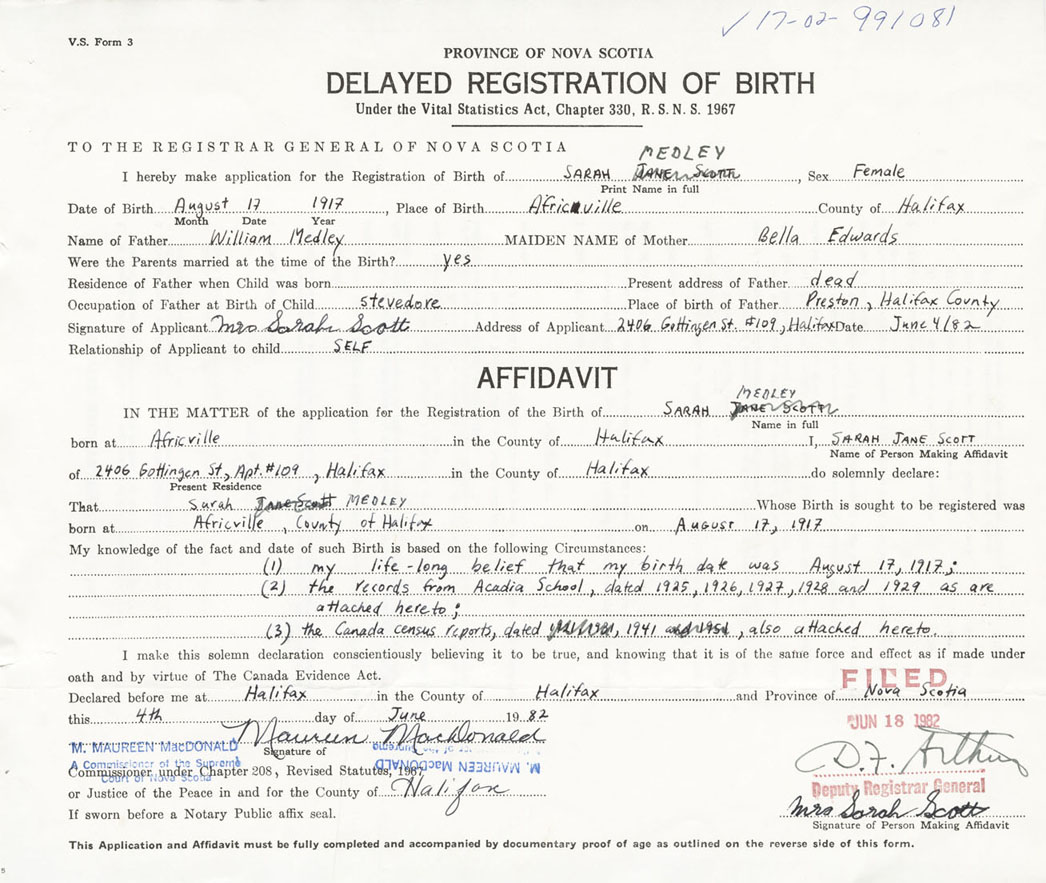 ✓ 17-02-991081
V.S. Form 3
PROVINCE OF NOVA SCOTIA
DELAYED REGISTRATION OF BIRTH
Under the Vital Statistics Act, Chapter 330, R.S.N.S. 1967
TO THE REGISTRAR GENERAL OF NOVA SCOTIA
MEDLEY
I hereby make application for the Registration of Birth of SARAH JANE SCOTT, Sex Female
Print Name in full
Date of Birth August 17 1917, Place of Birth Africville County of Halifax
Month Date Year
Name of Father William Medley MAIDEN NAME of Mother Bella Edwards
Were the Parents married at the time of the Birth? yes
Residence of Father when Child was born Present address of Father dead
Occupation of Father at Birth of Child stevedore Place of birth of Father Preston, Halifax County
Signature of Applicant Mrs Sarah Scott Address of Applicant 2406 Gottingen St. #109, Halifax Date June 4/82
Relationship of Applicant to child SELF
AFFIDAVIT
MEDLEY
IN THE MATTER of the application for the Registration of the Birth of SARAH JANE SCOTT
Name in full
born at Africville in the County of Halifax I, SARAH JANE SCOTT
Name of Person Making Affidavit
of 2406 Gottingen St, Apt. #109, Halifax in the County of Halifax do solemnly declare:
Present Residence
That Sarah Jane Scott MEDLEY Whose Birth is sought to be registered was
born at Africville, County of Halifax on August 17, 1917
My knowledge of the fact and date of such Birth is based on the following Circumstances:
(1) my life-long belief that my birth date was August 17, 1917;
(2) the records from Acadia School, dated 1925, 1926, 1927, 1928 and 1929 as are
attached hereto;
(3) the Canada census reports, dated 1941 and 1951, also attached hereto.
I make this solemn declaration conscientiously believing it to be true, and knowing that it is of the same force and effect as if made under
oath and by virtue of The Canada Evidence Act.
FILED
Declared before me at Halifax in the County of Halifax and Province of Nova Scotia
this 4th day of June 1982
JUN 18 1982
Maureen MacDonald
Signature of
M. MAUREEN MacDONALD
A Commissioner of the Supreme
Court of Nova Scotia
M. MAUREEN MacDONALD
D.F. Arthur
Commissioner under Chapter 208, Revised Statutes, 1967
or Justice of the Peace in and for the County of Halifax
Deputy Registrar General
Mrs Sarah Scott
If sworn before a Notary Public affix seal.
Signature of Person Making Affidavit
This Application and Affidavit must be fully completed and accompanied by documentary proof of age as outlined on the reverse side of this form.
5